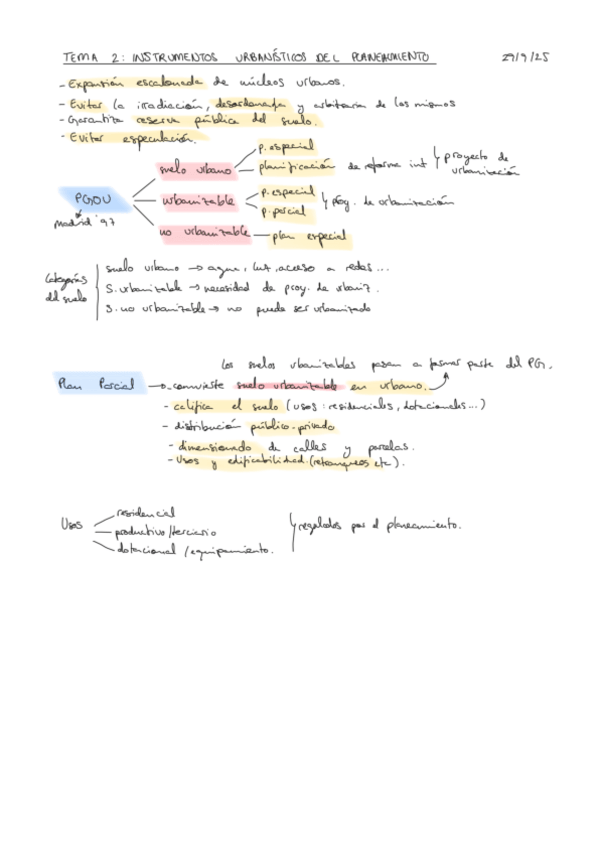 TEMA 2: INSTRUMENTOS URBANÍSTICOS DEL PLANEAMIENTO 29/9/25
- Expansión escalonada de núcleos urbanos.
- Evitar la irradiación, desordenada y arbitraria de los mismos
- Garantiza reserva pública del suelo.
- Evitar especulación.
PGOU
Madrid '97
suelo urbano
p. especial
planificación de reforma int
proyecto de urbanización
urbanizable
p. especial
p. parcial
proy. de urbanización
no urbanizable — plan especial
Categorías del suelo
suelo urbano → agua, luz, acceso a redes...
S. urbanizable → necesidad de proy. de urbaniz.
S. no urbanizable → no puede ser urbanizado
Los suelos urbanizables pasan a formar parte del PG.
Plan Parcial → convierte suelo urbanizable en urbano.
- califica el suelo (usos: residenciales, dotacionales...)
- distribución público-privado
- dimensionado de calles y parcelas.
- Usos y edificabilidad (retranqueos etc).
Usos
residencial
productivo/terciario
dotacional/equipamiento.
regulados por el planeamiento.